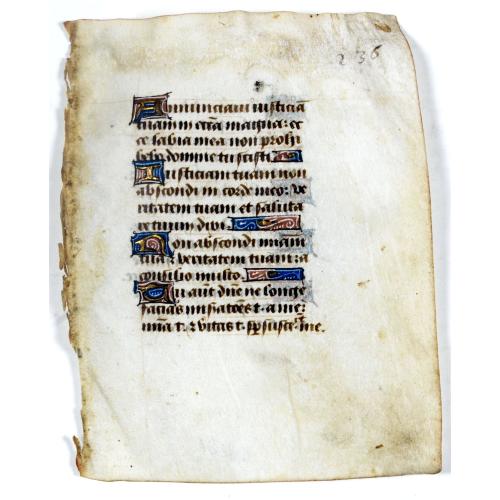 236
Annunciavi iusticiā
tuam in ecc̄a magna: ec
ce labia mea non prohi
bebo domine tu scisti.
Iusticiam tuam non
abscondi in corde meo: ve
ritatem tuam et saluta
re tuum dixi.
Non abscondi miam̄
tuā & veritatem tuam: a
consilio multo.
Tu aut̄ dn̄e ne longe
facias miśatōes t. a me:
mīa t. & v̄itas t. sp̄ susce. me.